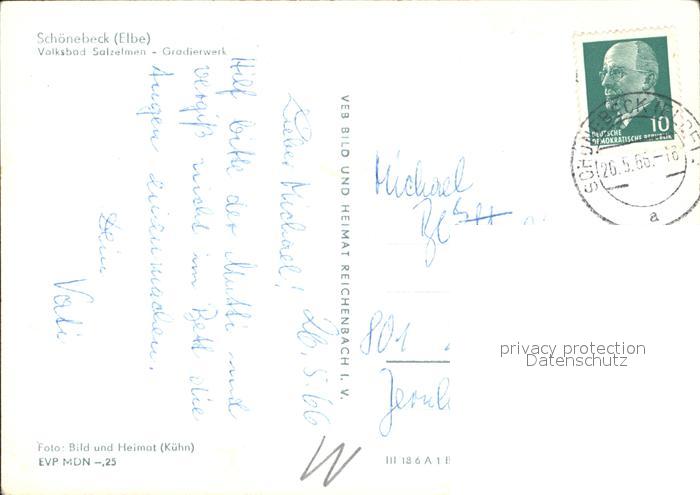 Schönebeck (Elbe)
Volksbad Salzelmen - Gradierwerk
26.5.66
Lieber Michael!
Hilf bitte der Mutti und
vergiß nicht im Bett die
Augen zuzumachen.
Dein
Vati
Foto: Bild und Heimat (Kühn)
EVP MDN –,25
VEB BILD UND HEIMAT REICHENBACH I. V.
10
DEUTSCHE
DEMOKRATISCHE REPUBLIK
26.5.66.-18
a
Michael
801
III 18 6 A 1
privacy protection
Datenschutz